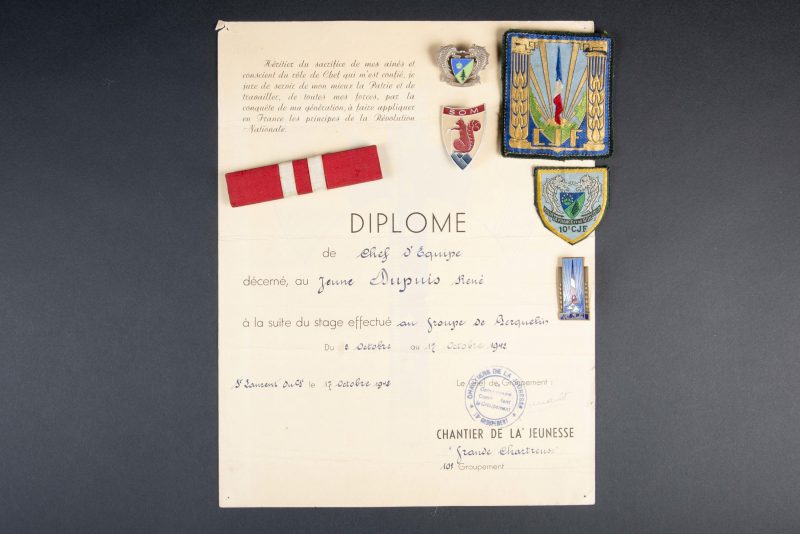 Héritier du sacrifice de mes aînés et
conscient du rôle de Chef qui m'est confié, je
jure de servir de mon mieux la Patrie et de
travailler, de toutes mes forces, par la
conquête de ma génération, à faire appliquer
en France les principes de la Révolution
Nationale.
SOM
CJF
10e CJF
DIPLOME
de Chef d'Equipe
décerné, au Jeune Dupuis René
à la suite du stage effectué au Groupe de Berquetin
Du 2 Octobre au 17 Octobre 1942
St Laurent Du Pt le 17 Octobre 1942
Le Chef de Groupement :
CHANTIERS DE LA JEUNESSE
Commissaire
Groupement
GROUPEMENT
CHANTIER DE LA JEUNESSE
"Grande Chartreuse"
10e Groupement